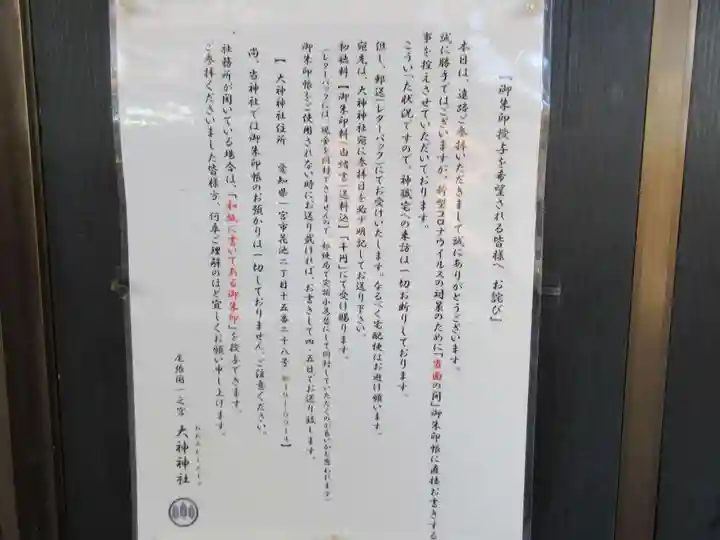 『御朱印授与を希望される皆様へ　お詫び』
本日は、遠路ご参拝いただきまして誠にありがとうございます。
誠に勝手ではございますが、新型コロナウイルスの対策のために「当面の間」御朱印帳に直接お書きする
事を控えさせていただいております。
こういった状況ですので、神職宅への来訪は一切お断りしております。
但し、郵送(レターパック)にてお受けいたします。なるべく宅配便はお避け願います。
宛先は、大神神社宛に参拝日を必ず明記してお送り下さい。
初穂料【御朱印料(由緒書)送料込】「千円」にて受け賜ります。
(レターパックには、現金を同封できませんので、郵便局で定額小為替にして同封していただくのが良いかと思われます)
御朱印帳をご使用されない時にお送り戴ければ、お書きして四、五日でお送り致します。
【　大神神社住所　愛知県一宮市花池二丁目十五番二十八号
尚、当神社では御朱印帳のお預かりは一切しておりません。ご注意ください。
社務所が開いている場合は、「和紙に書いてある御朱印」を授与できます。
ご参拝くださいました皆様方、何卒ご理解のほど宜しくお願い申し上げます。
尾張國一之宮　大神神社